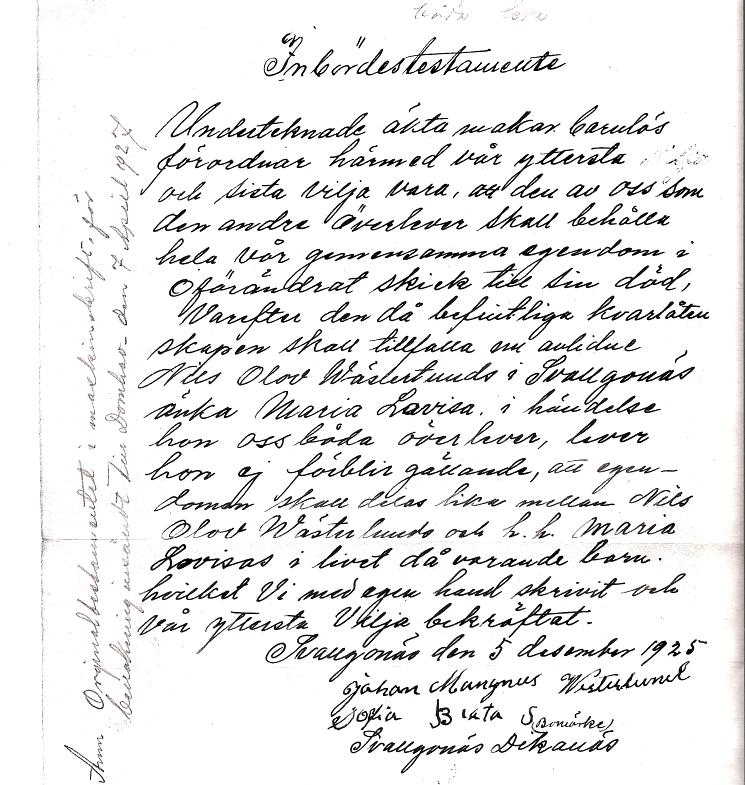 båda
Inbördestestamente
Underteknade äkta makar barnlös
förordnar härmed vår yttersta vilja
och sista vilja vara, at den av oss som
den andre överlever skall behålla
hela vår gemensamma egendom i
Oförändrat skick till sin död,
Varefter den då befintliga kvarlåten
skapen skall tillfalla nu avlidne
Nils Olov Wästerlunds i Svallgonäs
änka Maria Lovisa. i händelse
hon oss båda överlever, lever
hon ej förblir gällande, att egen-
doman skall delas lika mellan Nils
Olov Wästerlunds och h. h. Maria
Lovisas i livet då varande barn.
hvilket Vi med egen hand skrivit och
vår yttersta Vilja bekräftat.
Svallgonäs den 5 desember 1925
Johan Mangnus Westerlund
Sofia Biata S (Bomärke)
Svallgonäs Dikanäs
Anm Orginaltestamentet i maskinskrift, för
bevakning insändt Till Domhav- den 7 April 1927